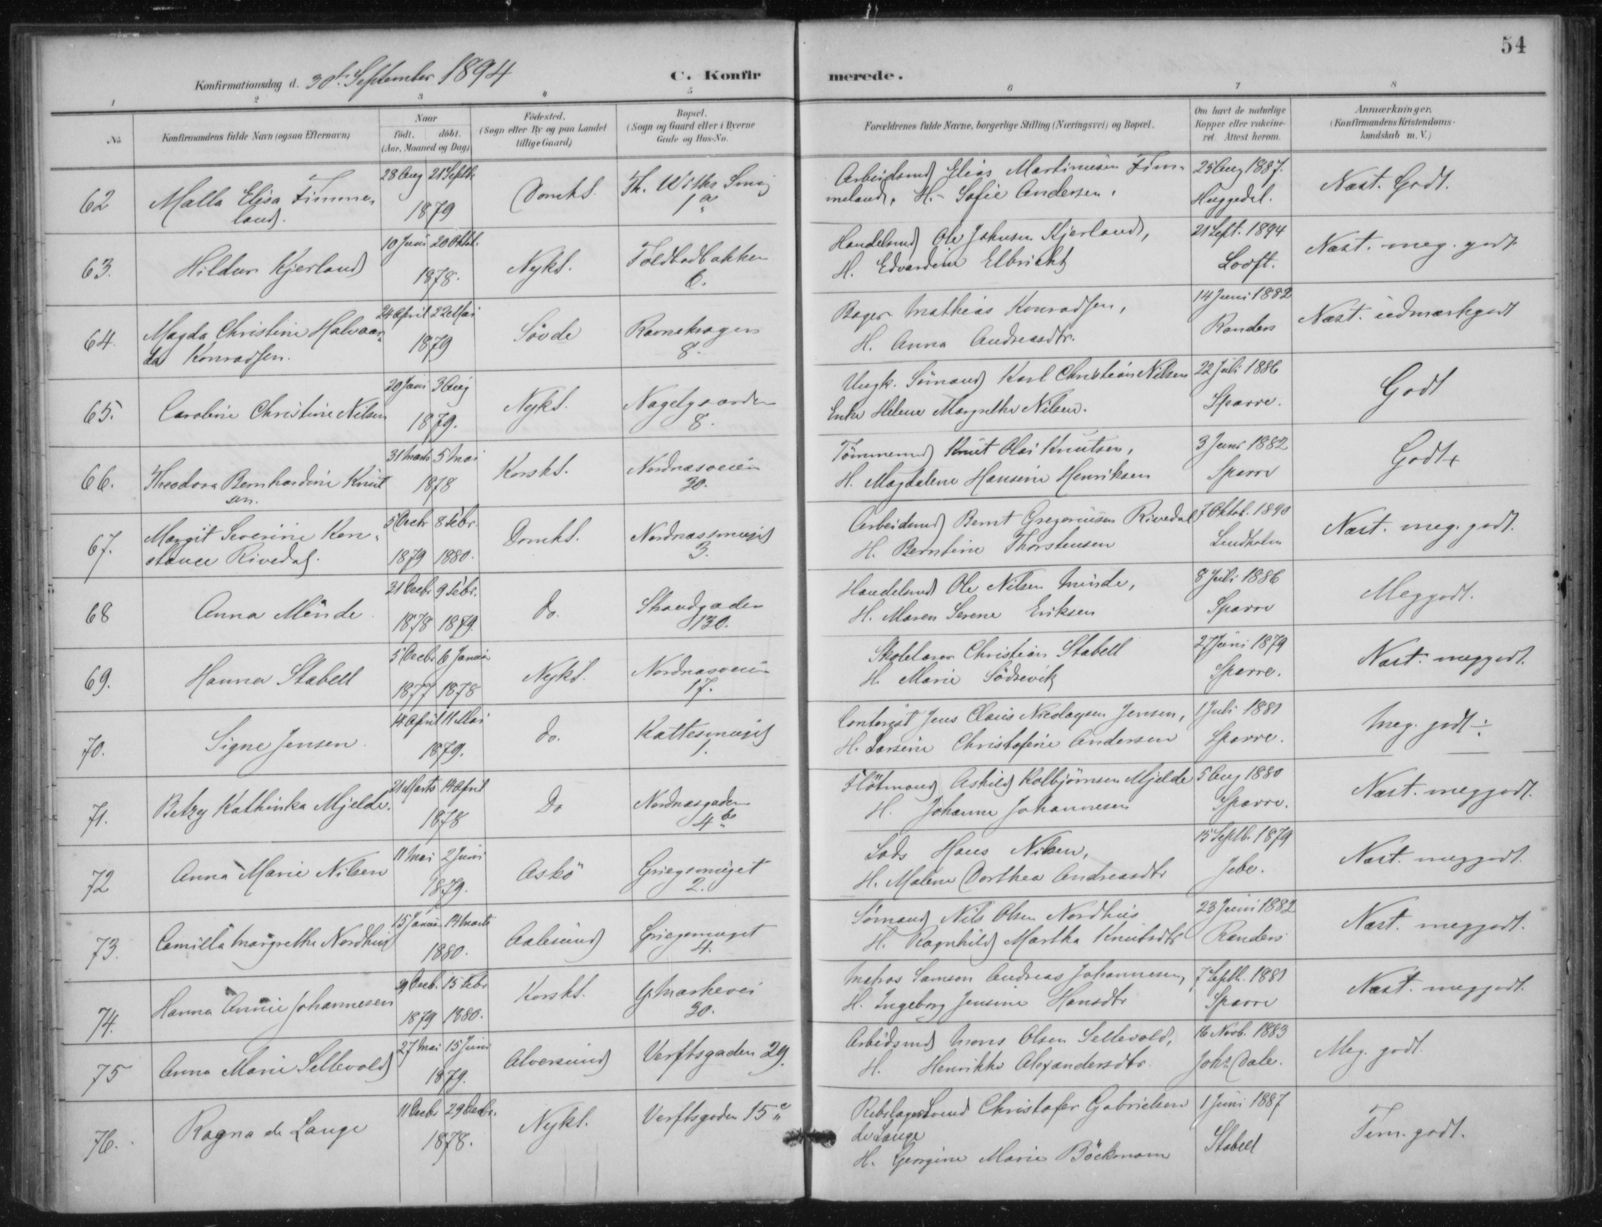 54
Konfirmationsdag d. 30te September 1894 C. Konfirmerede.
1 2 3 4 5 6 7 8
No. Konfirmandens fulde Navn (ogsaa Efternavn) Naar født. døbt. (Aar, Maaned og Dag) Fødested. (Sogn eller By og paa Landet tillige Gaard) Bopæl. (Sogn og Gaard eller i Byerne Gade og Hus-No. Forældrenes fulde Navne, borgerlige Stilling (Næringsvei) og Bopæl. Om havt de naturlige Kopper eller vakcineret. Attest herom. Anmærkninger. (Konfirmandens Kristendomskundskab m. V.)
62 Malla Elisa Timmeland. 28 Aug 21 Septb. 1879 Domk. Th. Withs Smug 1a Arbeidsmd Elias Martinusen Timmeland, H. Sofie Andersen. 25 Aug 1887. Huggedal. Næst. Godt.
63. Hildur Kjerland 10 Juni 20 Oktb. 1878. Nykt. Toldbodbakken 6. Handelsmd Ole Johnsen Kjerland, H. Edvardine Elbricht 21 Sept. 1894 Looft. Næst. meg. godt
64. Magda Christine Halvarda Konradsen. 24 April 22 Mai 1879 Søvde Ravnekrogen 8. Bager Mathias Konradsen, H. Anna Andreasdtr. 14 Juni 1882 Randers Næst. udmærketgodt
65. Caroline Christine Nilsen 20 Juni 3 Aug 1879. Nykt. Nagelgaarden 8. Ungk. Sømand Karl Christian Nilsen Enke Helene Margrethe Nilsen. 22 Juli 1886 Sparre. Godt
66. Theodora Bernhardine Knutsen. 31 Marts 5 Mai 1878 Korskt. Nordnæsveien 30. Tømmermd Knut Olai Knutsen, H. Magdalene Hansine Henriksen 3 Juni 1882 Sparre Godt +
67. Margit Severine Konstance Rivedal. 5 Decbr 8 Febr. 1879 1880. Domkt. Nordnæssmuget 3. Arbeidsmd Bernt Gregoriusen Rivedal H. Berntine Thorstensen 7 Oktob. 1890 Lindholm Næst. meg. godt.
68 Anna Minde 31 Decbr 9 Febr. 1878 1879. do. Strandgaden 130. Handelsmd Ole Nilsen Minde, H. Maren Serene Eriksen 8 Juli 1886 Sparre Meg godt.
69. Hanna Stabell 5 Decbr 6 Januar 1877 1878 Nykt. Nordnæsveien 17. Skolelærer Christian Stabell H. Marie Södsvik 27 Juni 1879 Sparre. Næst. meg godt.
70. Signe Jensen. 14 April 11 Mai 1879. do. Kattesmuget 1. Contorist Jens Claus Nicolaysen Jensen, H. Larsine Christofine Andersen 1 Juli 1881 Sparre. Meg. godt ÷
71. Betzy Kathinka Mjelde. 21 Marts 14 April 1878 Do Nordnæsgaden 4b Fløtmand Askild Kolbjørnsen Mjelde H. Johanne Johannesen 5 Aug 1880 Sparre. Næst. meg godt.
72 Anna Marie Nilsen 11 Mai 2 Juni 1879. Askö Griegsmuget 2. Lods Hans Nilsen, H. Malene Dorthea Andreasdtr 15 Septb. 1879 Jebe. Næst. meg godt.
73. Camilla Margrethe Nordhus 15 Januar 14 Marts 1880. Aalesund Griegsmuget 4. Sømand Nils Olsen Nordhus H. Ragnhild Martha Knutsdtr 23 Juni 1882 Randers Næst. meg godt.
74. Hanna Annie Johannesen 9 Decb. 15 Febr 1879 1880. Korskt. G. Markevei 30. Matros Samson Andreas Johannesen, H. Ingeborg Jensine Hansdtr 7 Septb. 1881 Sparre Næst. meg godt.
75 Anna Marie Sellevold 27 Mai 15 Juni 1879. Alversund Verftsgaden 29. Arbeidsmd Mons Olsen Sellevold, H. Henrikke Alexandersdtr 16 Novb. 1883 Johs. Dale. Meg. godt
76. Ragna de Lange 11 Decbr 29 Decbr. 1878. Nykt. Verftsgaden 15c Rebslagersvend Christofer Gabrielsen de Lange H. Georgine Marie Böckmann 1 Juni 1887 Stabell Tem. godt.